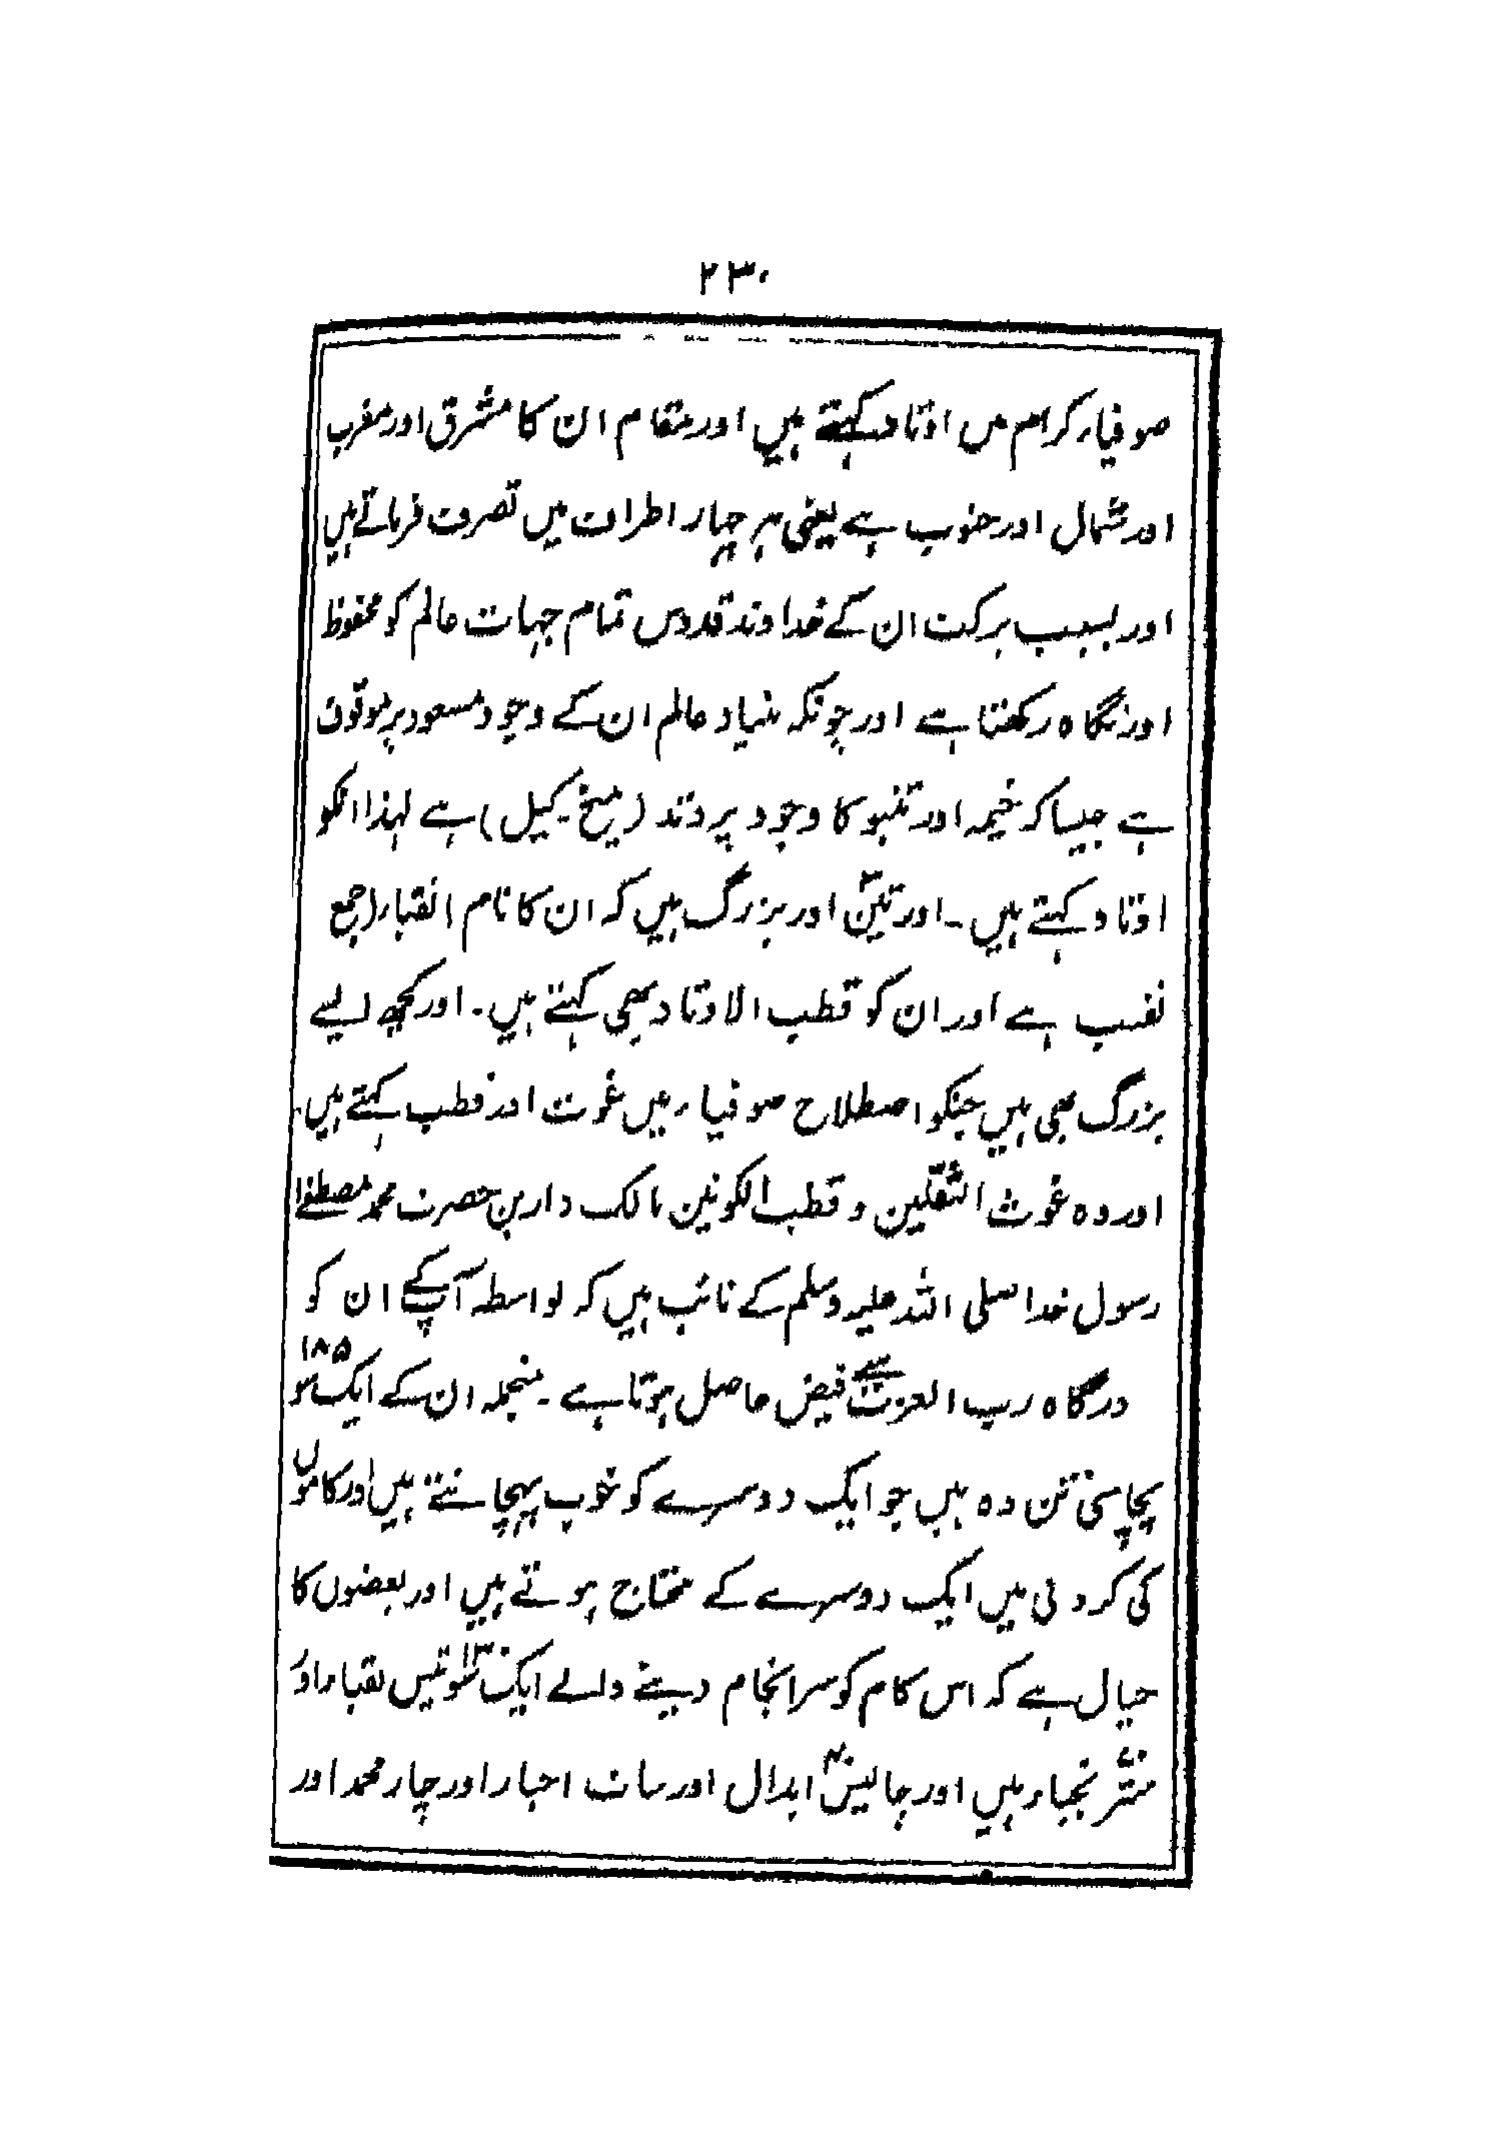 ۲۳۰
صوفیاء کرام میں اوتاد کہتے ہیں اور مقام ان کا مشرق اور مغرب
اور شمال اور جنوب ہے یعنی ہر چہار اطراف میں تصرف فرماتے ہیں
اور بسبب برکت ان کے خداوند قدوس تمام جہات عالم کو محفوظ
اور نگاہ رکھتا ہے اور چونکہ بنیاد عالم ان کے وجود مسعود پر موقوف
ہے جیسا کہ خیمہ اور تنبو کا وجود پر وتد (میخ۔ کیل) ہے لہذا انکو
اوتاد کہتے ہیں۔ اور تین ۳ اور بزرگ ہیں کہ ان کا نام النقباء (جمع
نقیب ہے اور ان کو قطب الاوتاد بھی کہتے ہیں۔ اور کچھ ایسے
بزرگ بھی ہیں جنکو اصطلاح صوفیاء میں غوث اور قطب کہتے ہیں
اور وہ غوث الثقلین و قطب الکونین مالک دارین حضرت محمد مصطفےٰ
رسول خدا صلی اللہ علیہ وسلم کے نائب ہیں کہ بواسطہ آپکے ان کو
درگاہ رب العزت سے فیض حاصل ہوتا ہے۔ منجملہ ان کے ایک سو ۱۸۵
پچاسی تن وہ ہیں جو ایک دوسرے کو خوب پہچانتے ہیں اور کاموں
کی کردنی میں ایک دوسرے کے محتاج ہوتے ہیں اور بعضوں کا
خیال ہے کہ اس کام کو سرانجام دینے والے ایک سو تیس نقباء اور
ستر ۷۰ نجباء ہیں اور چالیس ۴۰ ابدال اور سات اخیار اور چار محمد اور